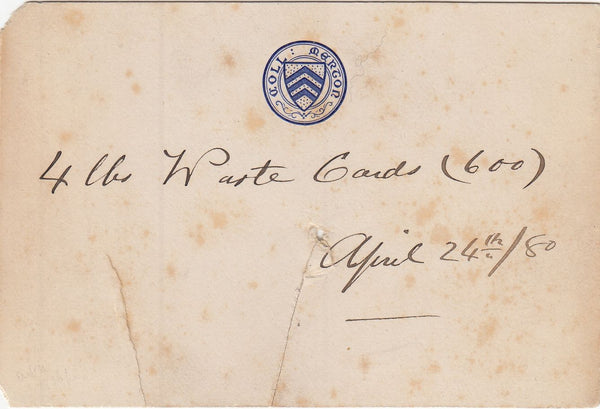 COLL : MERTON
4 lbs Waste Cards (600)
April 24th/80